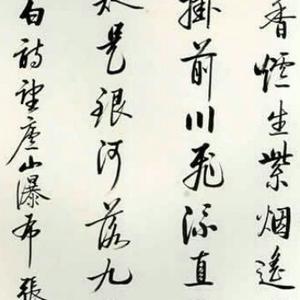 香炉生紫烟遥
掛前川飛流直
是银河落九
白詩望廬山瀑布張